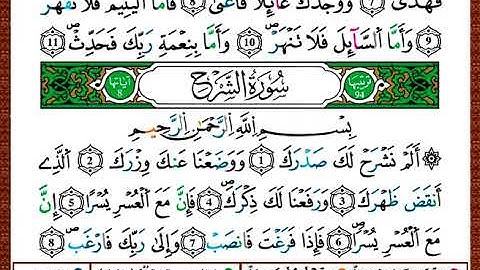 فَهَدَىٰ ۝٧ وَوَجَدَكَ عَآئِلًا فَأَغْنَىٰ ۝٨ فَأَمَّا ٱلْيَتِيمَ فَلَا تَقْهَرْ
۝٩ وَأَمَّا ٱلسَّآئِلَ فَلَا تَنْهَرْ ۝١٠ وَأَمَّا بِنِعْمَةِ رَبِّكَ فَحَدِّثْ ۝١١
ترتيبها 94 سُورَةُ الشَّرْحِ آياتها 8
بِسْمِ ٱللَّهِ ٱلرَّحْمَٰنِ ٱلرَّحِيمِ
أَلَمْ نَشْرَحْ لَكَ صَدْرَكَ ۝١ وَوَضَعْنَا عَنكَ وِزْرَكَ ۝٢ ٱلَّذِىٓ
أَنقَضَ ظَهْرَكَ ۝٣ وَرَفَعْنَا لَكَ ذِكْرَكَ ۝٤ فَإِنَّ مَعَ ٱلْعُسْرِ يُسْرًا ۝٥ إِنَّ
مَعَ ٱلْعُسْرِ يُسْرًا ۝٦ فَإِذَا فَرَغْتَ فَٱنصَبْ ۝٧ وَإِلَىٰ رَبِّكَ فَٱرْغَب ۝٨